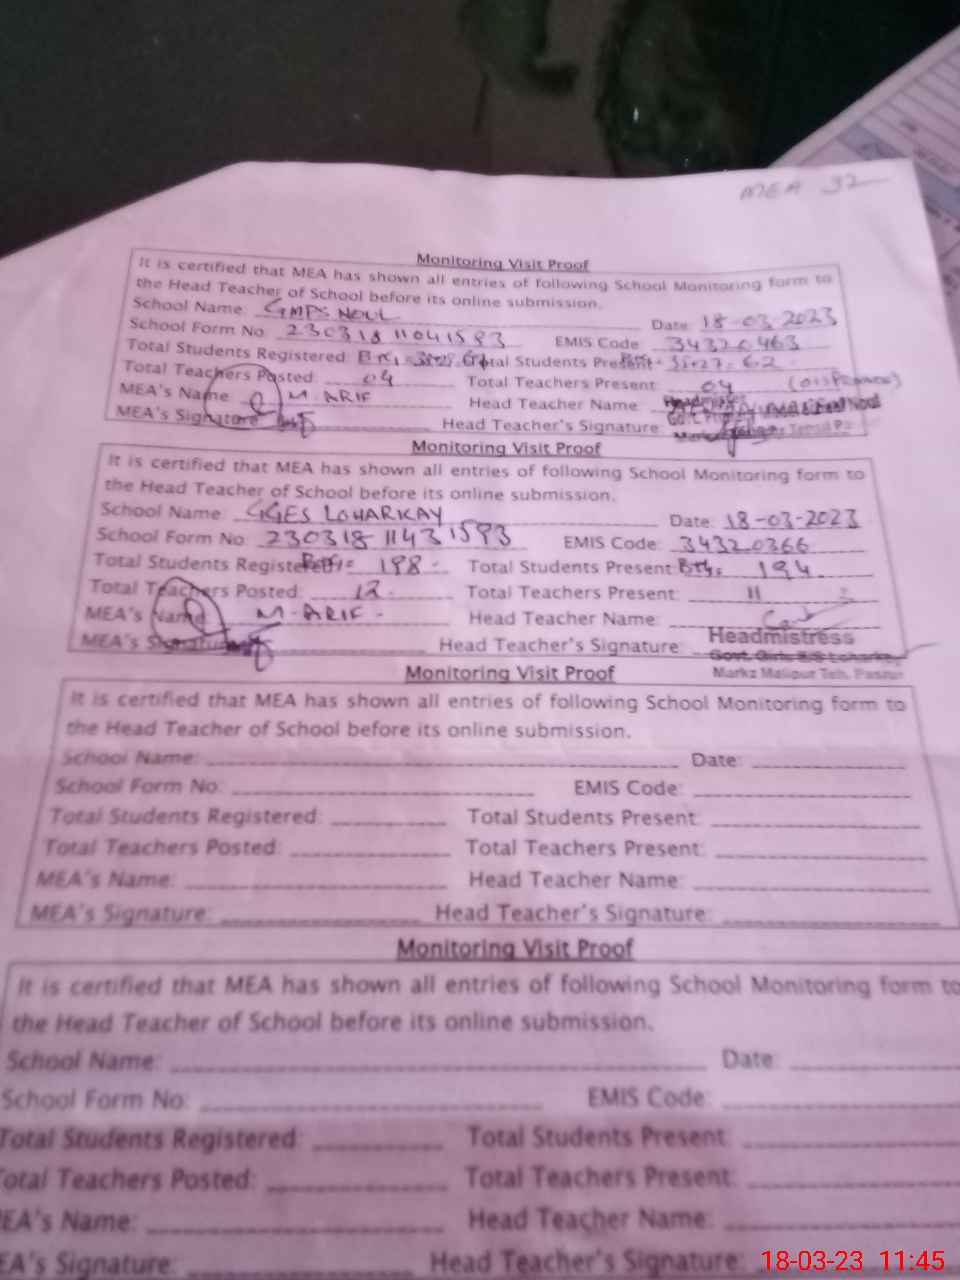 MEA 32
Monitoring Visit Proof
It is certified that MEA has shown all entries of following School Monitoring form to
the Head Teacher of School before its online submission.
School Name: GMPS NOUL Date: 18-03-2023
School Form No: 230318 11041593 EMIS Code: 34320463
Total Students Registered: Total Students Present: 35+27=62
Total Teachers Posted: 04 Total Teachers Present: 04
MEA's Name: M. ARIF Head Teacher Name: Headmistress
MEA's Signature: Head Teacher's Signature:
Monitoring Visit Proof
It is certified that MEA has shown all entries of following School Monitoring form to
the Head Teacher of School before its online submission.
School Name: GGES LOHARKAY Date: 18-03-2023
School Form No: 230318 11431593 EMIS Code: 34320366
Total Students Registered: 198 Total Students Present: 194
Total Teachers Posted: 12 Total Teachers Present: 11
MEA's Name: M-ARIF Head Teacher Name:
MEA's Signature: Head Teacher's Signature: Headmistress
Govt. Girls E/S Loharkey
Markz Malipur Teh. Pasrur
Monitoring Visit Proof
It is certified that MEA has shown all entries of following School Monitoring form to
the Head Teacher of School before its online submission.
School Name: Date:
School Form No: EMIS Code:
Total Students Registered: Total Students Present:
Total Teachers Posted: Total Teachers Present:
MEA's Name: Head Teacher Name:
MEA's Signature: Head Teacher's Signature:
Monitoring Visit Proof
It is certified that MEA has shown all entries of following School Monitoring form to
the Head Teacher of School before its online submission.
School Name: Date:
School Form No: EMIS Code:
Total Students Registered: Total Students Present:
Total Teachers Posted: Total Teachers Present:
EA's Name: Head Teacher Name:
EA's Signature: Head Teacher's Signature:
18-03-23 11:45